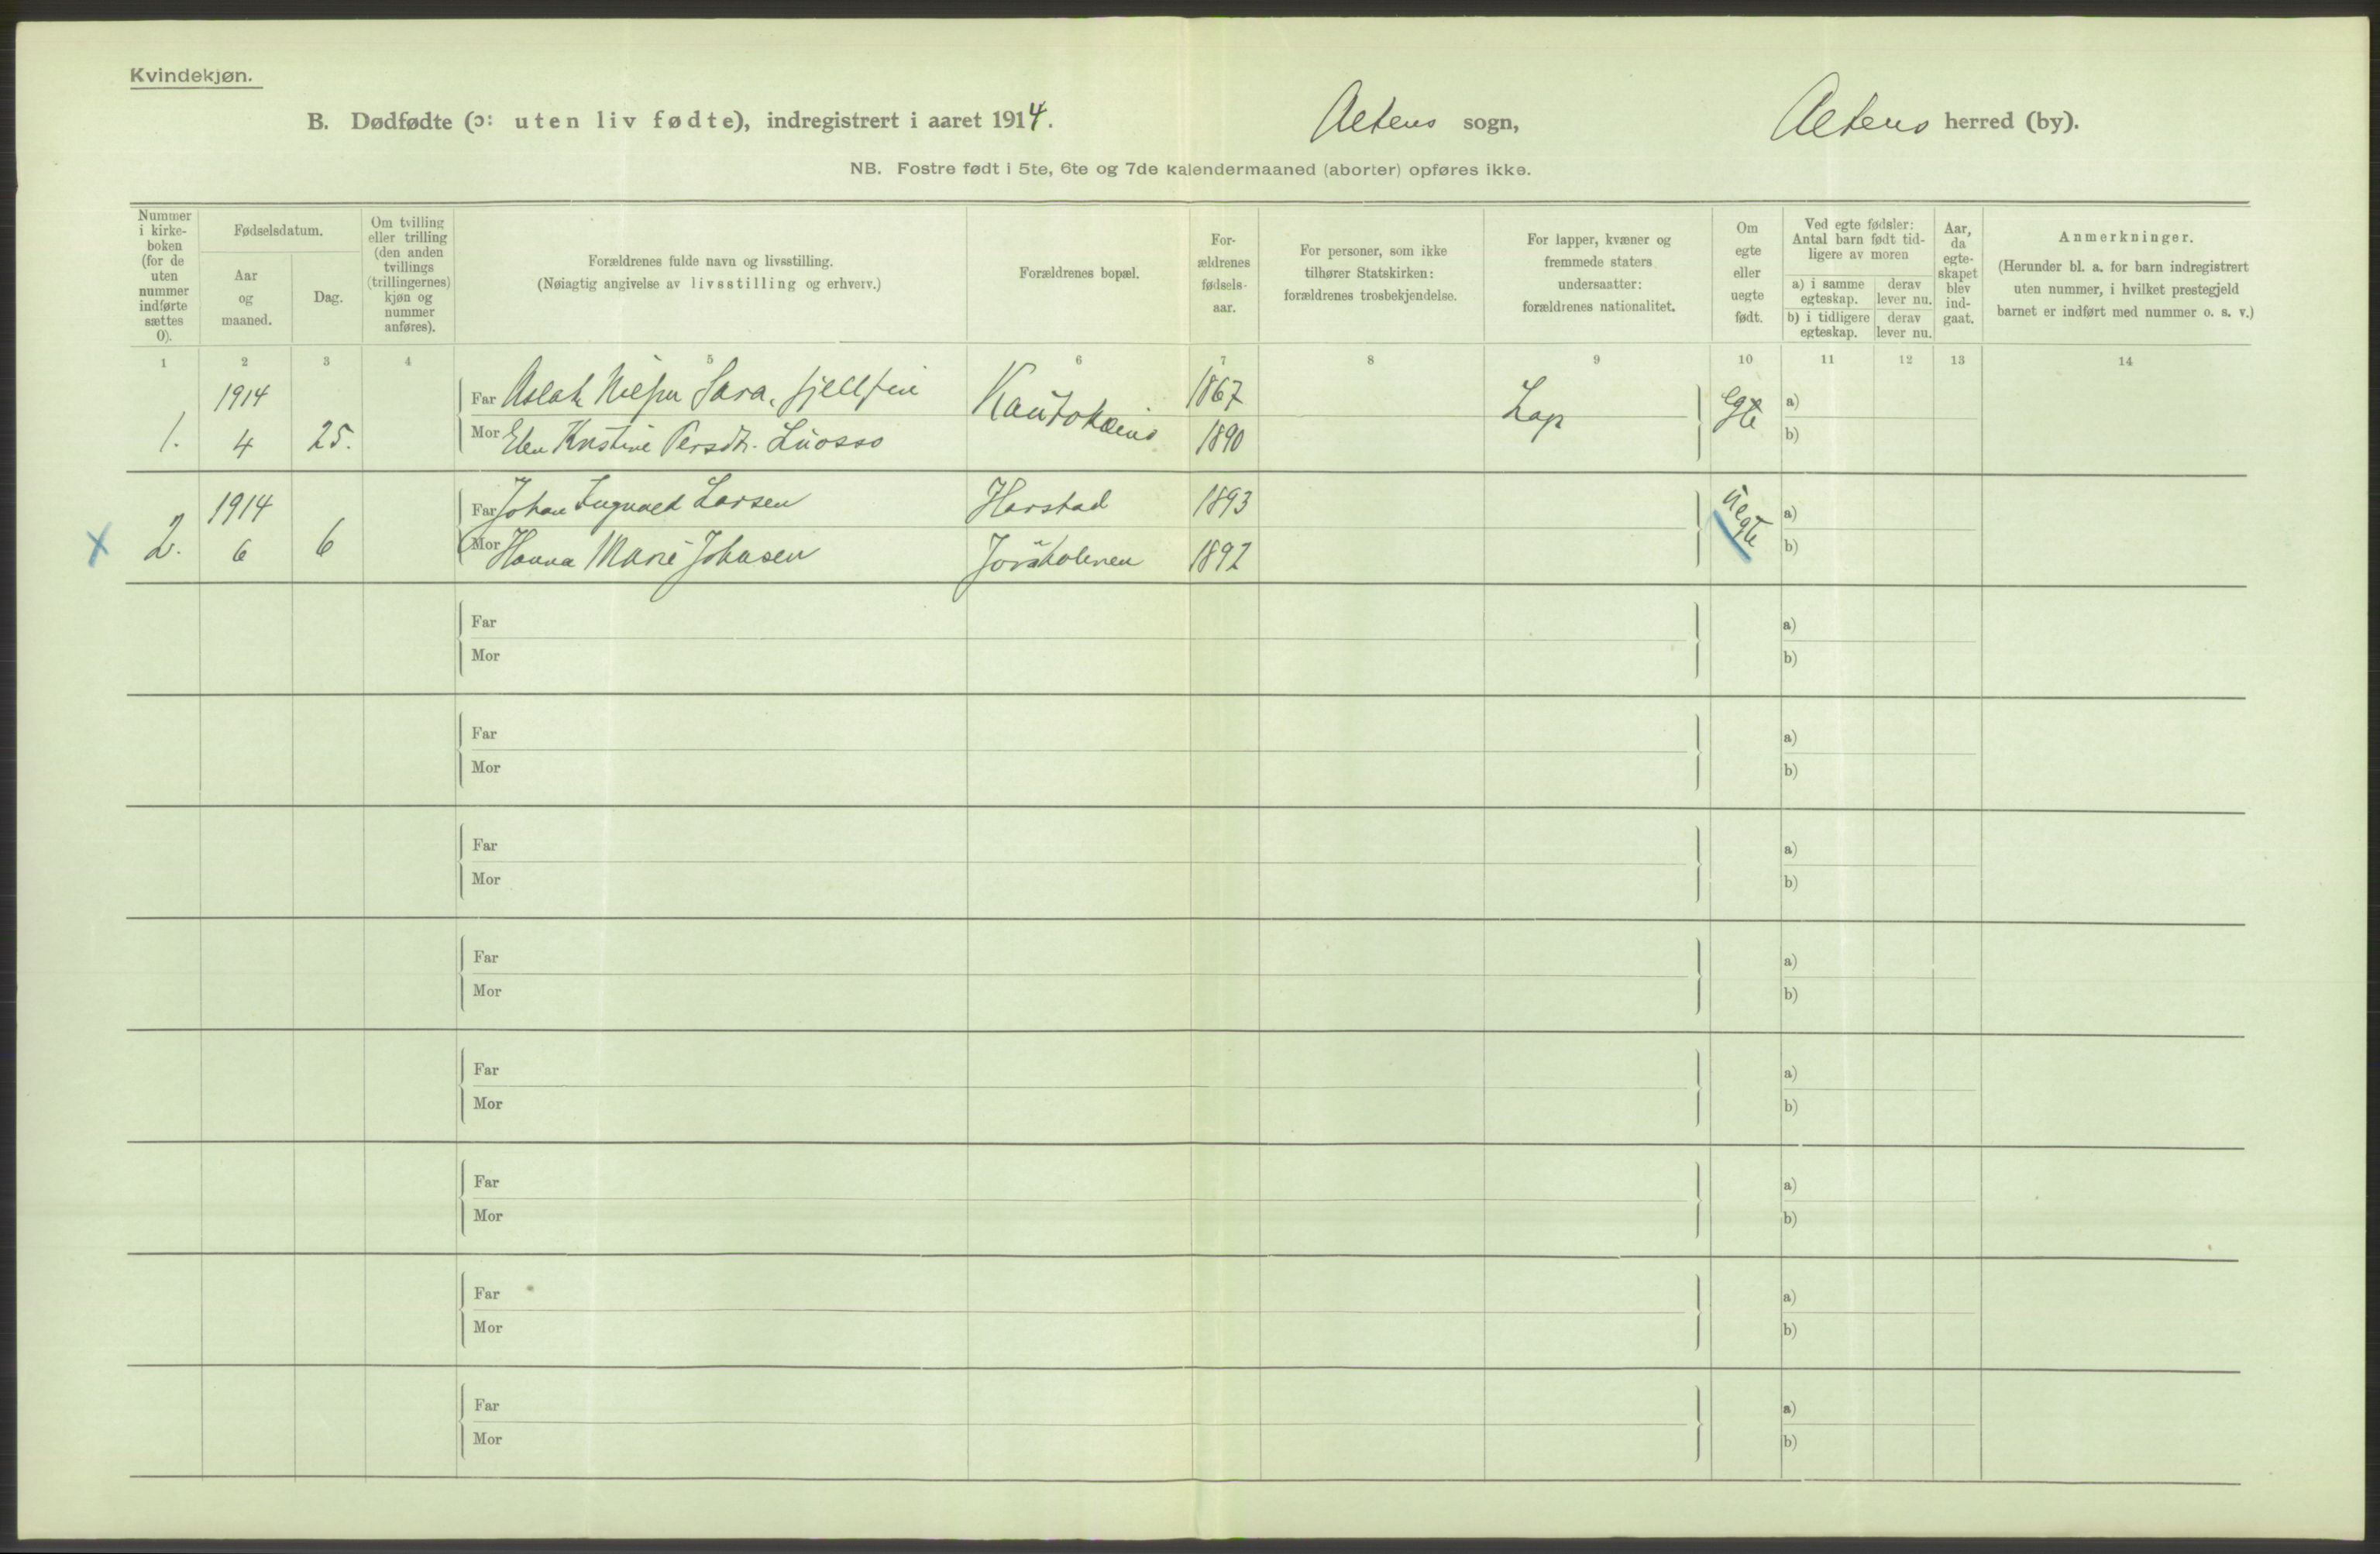 Kvindekjøn.
B. Dødfødte (ɔ: uten liv fødte), indregistrert i aaret 1914. Altens sogn, Altens herred (by).
NB. Fostre født i 5te, 6te og 7de kalendermaaned (aborter) opføres ikke.
Nummer i kirke-boken (for de uten nummer indførte sættes 0).
Fødselsdatum.
Aar og maaned.
Dag.
Om tvilling eller trilling (den anden tvillings (trillingernes) kjøn og nummer anføres).
Forældrenes fulde navn og livsstilling.
(Nøiagtig angivelse av livsstilling og erhverv.)
Forældrenes bopæl.
For-ældrenes fødsels-aar.
For personer, som ikke tilhører Statskirken: forældrenes trosbekjendelse.
For lapper, kvæner og fremmede staters undersaatter: forældrenes nationalitet.
Om egte eller uegte født.
Ved egte fødsler: Antal barn født tid-ligere av moren
a) i samme egteskap. derav lever nu.
b) i tidligere egteskap. derav lever nu.
Aar, da egte-skapet blev ind-gaat.
Anmerkninger.
(Herunder bl. a. for barn indregistrert uten nummer, i hvilket prestegjeld barnet er indført med nummer o. s. v.)
1 2 3 4 5 6 7 8 9 10 11 12 13 14
1914 Far Aslak Nilsen Sara, fjellfin Kautokeino 1867 Lap egte a)
1. 4 25. Mor Elen Kristine Persdtr. Luosso 1890 b)
1914 Far Johan Ingvald Larsen Harstad 1893 uegte a)
X 2. 6 6 Mor Hanna Marie Johnsen 1892 b)
Far a)
Mor b)
Far a)
Mor b)
Far a)
Mor b)
Far a)
Mor b)
Far a)
Mor b)
Far a)
Mor b)
Far a)
Mor b)
Far a)
Mor b)